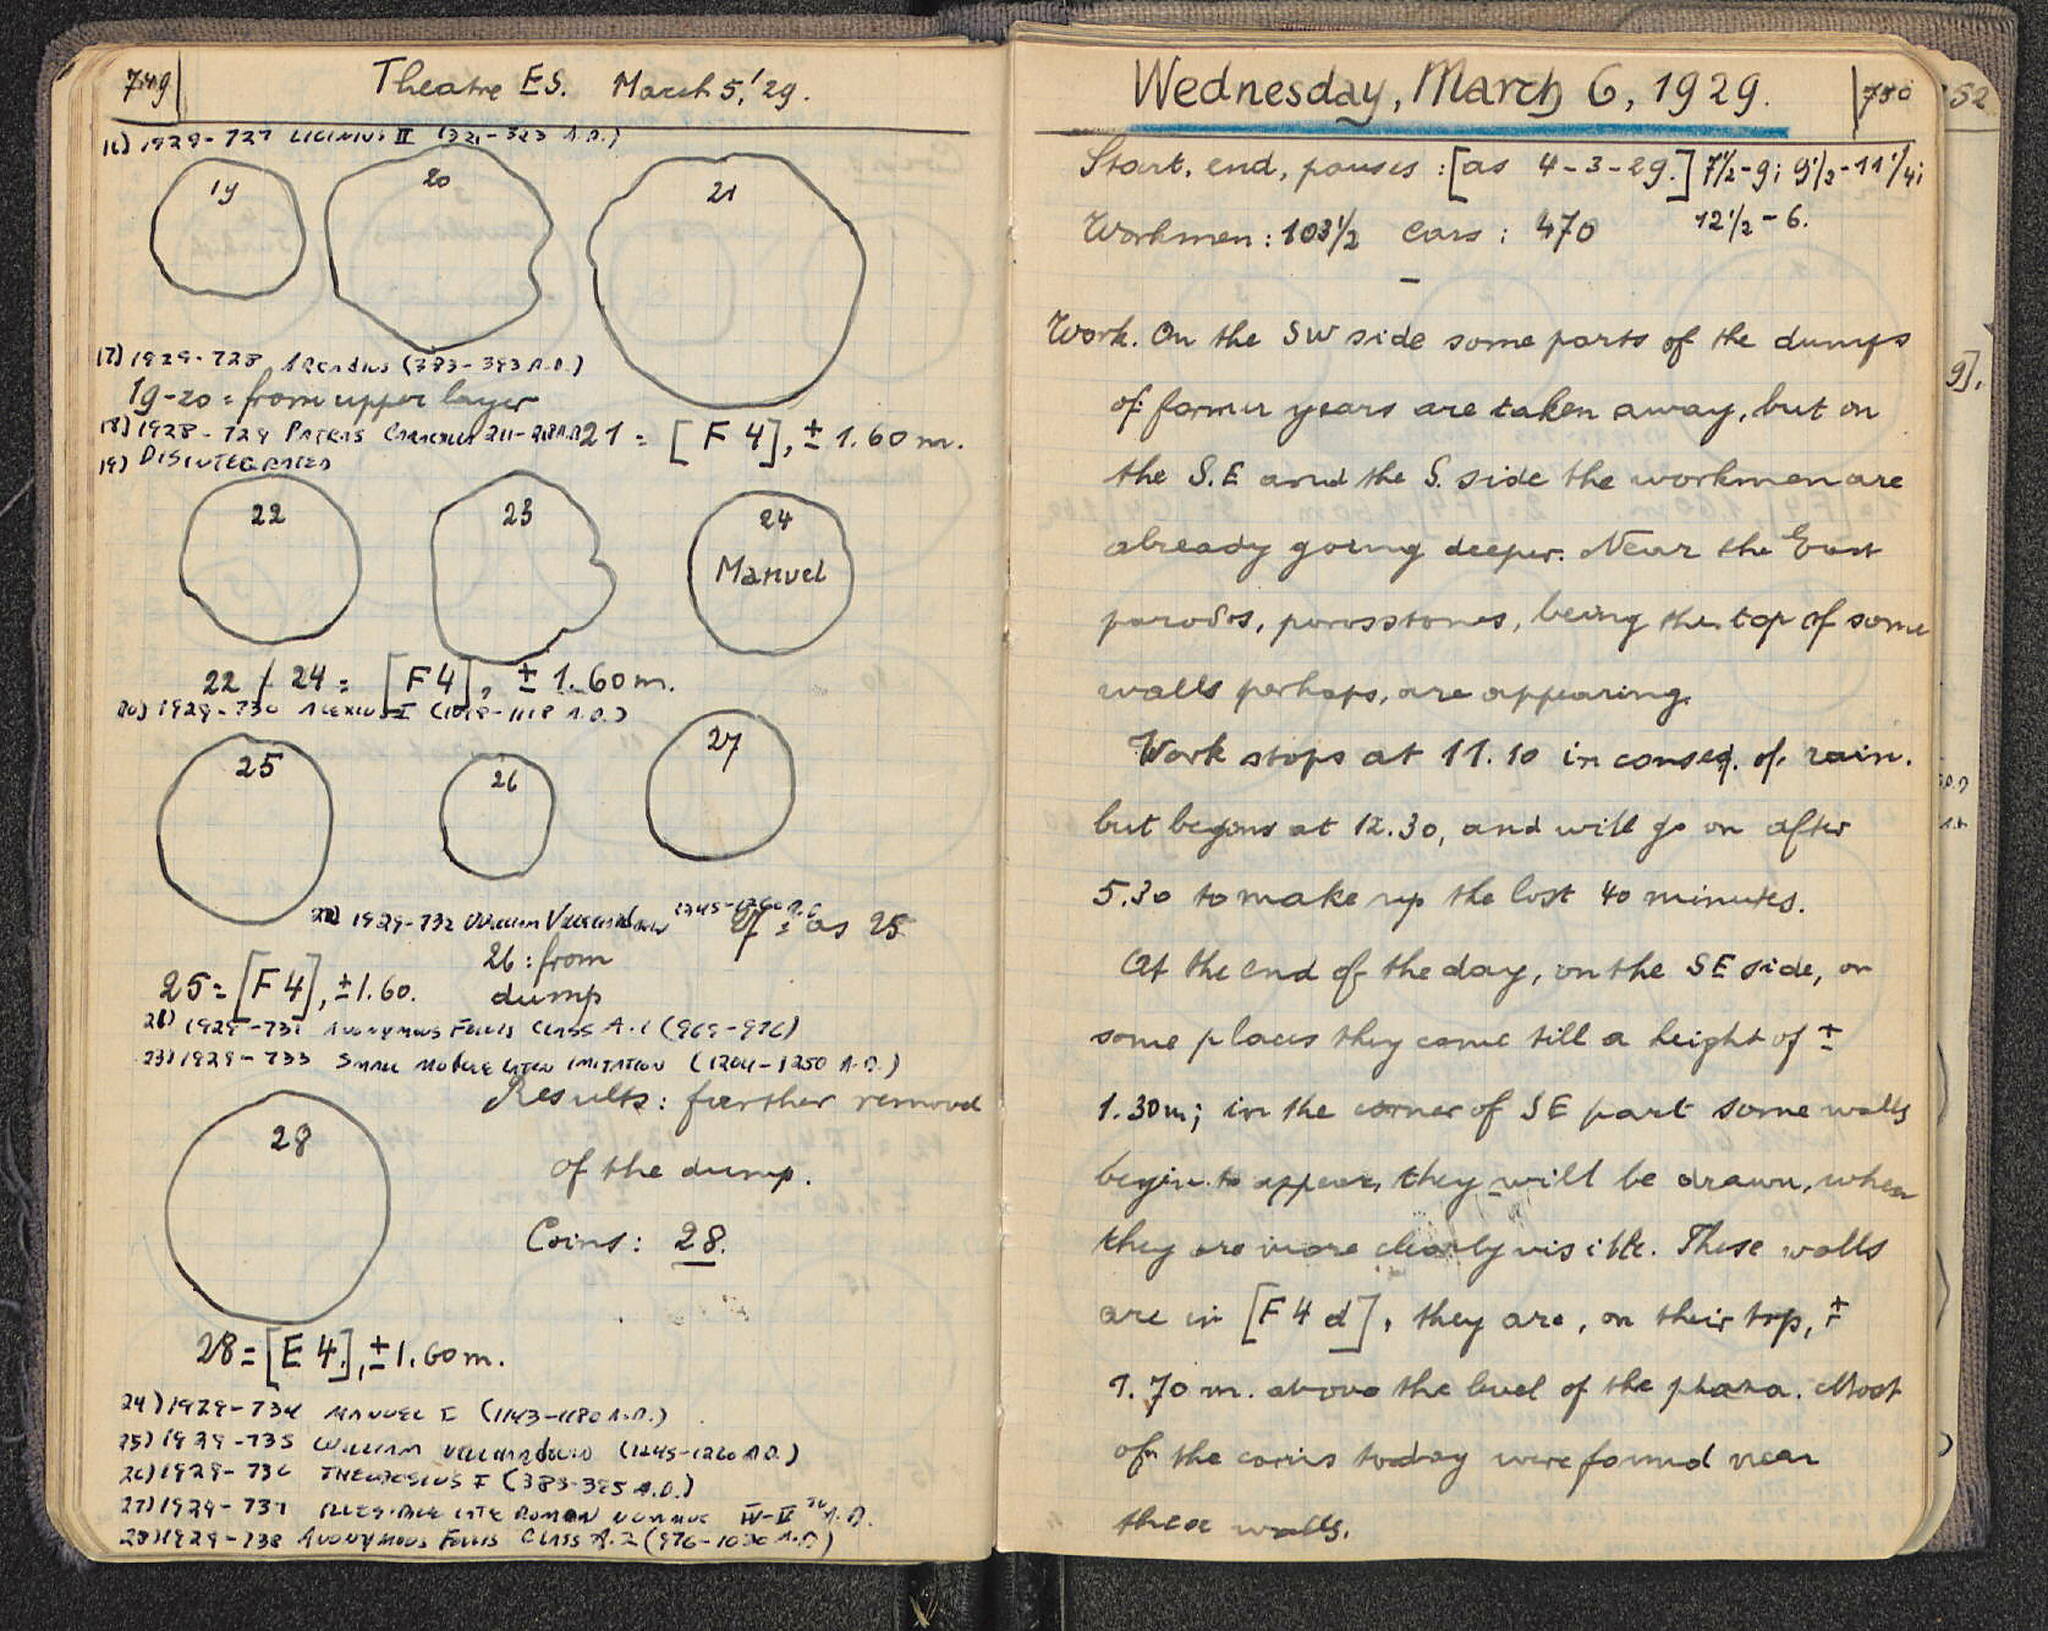 749
Theatre ES. March 5, '29.
16) 1929-727 LICINIUS II (321-323 A.D.)
19
20
21
17) 1929-728 ARCADIUS (383-393 A.D.)
19-20 = from upper layer
18) 1928-729 PATRAS CARACALLA 211-218 A.D.
21 = [F 4], ± 1.60 m.
19) DISINTEGRATED
22
23
24
Manuel
22 / 24 = [F 4], ± 1.60 m.
20) 1929-730 ALEXIUS I (1018-1118 A.D.)
25
26
27
22) 1929-732 WILLIAM VILLEHARDOUIN 1245-1260 A.D.
27 = as 25
26: from
dump
25 = [F 4], ± 1.60.
21) 1929-731 ANONYMOUS FOLLIS CLASS A.1 (969-976)
23) 1929-733 SMALL MODULE LATIN IMITATION (1204-1250 A.D.)
28
Results: further removal
of the dump.
Coins: 28.
28 = [E 4], ± 1.60 m.
24) 1929-734 MANUEL I (1143-1180 A.D.)
25) 1929-735 WILLIAM VILLEHARDOUIN (1245-1260 A.D.)
26) 1929-736 THEODOSIUS I (383-395 A.D.)
27) 1929-737 ILLEGIBLE LATE ROMAN
28) 1929-738 ANONYMOUS FOLLIS CLASS A.2 (976-1030 A.D)
Wednesday, March 6, 1929.
750
52
Start, end, pauses : [as 4-3-29.] 7½-9; 9½-11¼;
12½-6.
Workmen: 103½ cars: 470
Work. On the SW side some parts of the dumps
of former years are taken away, but on
the S.E and the S. side the workmen are
already going deeper. Near the East
parodos, porosstones, being the top of some
walls perhaps, are appearing.
Work stops at 11.10 in conseq. of rain.
but begins at 12.30, and will go on after
5.30 to make up the lost 40 minutes.
At the end of the day, on the SE side, on
some places they come till a height of ±
1.30 m; in the corner of SE part some walls
begin to appear, they will be drawn, when
they are more clearly visible. These walls
are in [F 4 d], they are, on their top, ±
1.70 m. above the level of the plaza. Most
of the coins today were found near
these walls.